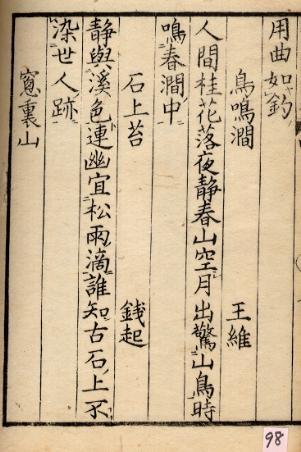 用曲如鈎
鳥鳴澗 王維
人間桂花落夜静春山空月出驚山鳥時
鳴春澗中
石上苔 錢起
静與溪色連幽宜松雨滴誰知古石上不
染世人跡
窓裏山
98